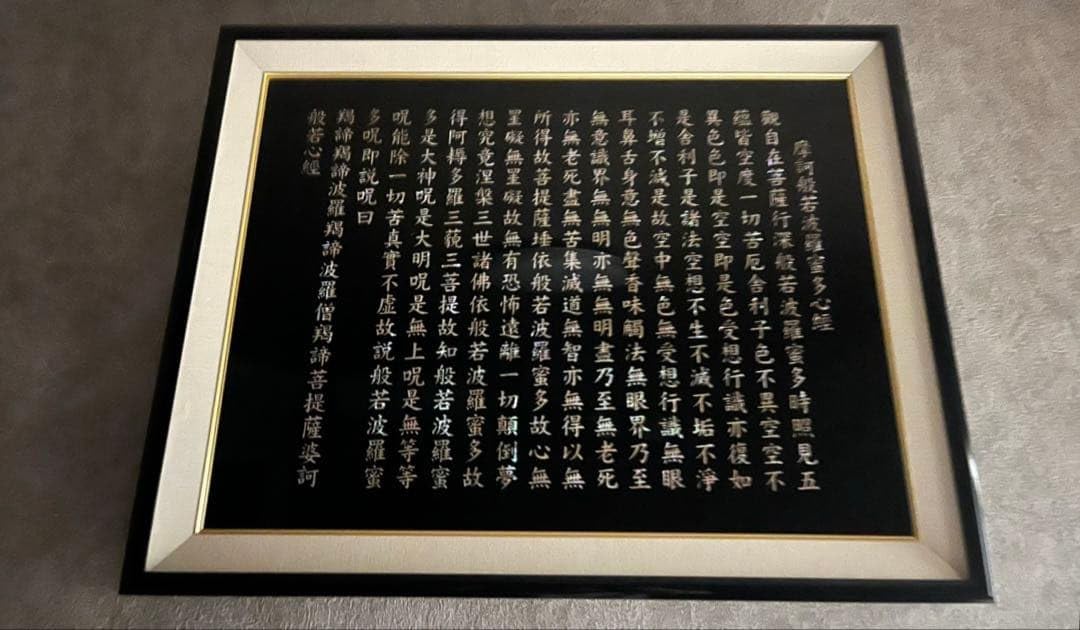 摩訶般若波羅蜜多心經
觀自在菩薩行深般若波羅蜜多時照見五
蘊皆空度一切苦厄舍利子色不異空空不
異色色即是空空即是色受想行識亦復如
是舍利子是諸法空想不生不滅不垢不淨
不增不減是故空中無色無受想行識無眼
耳鼻舌身意無色聲香味觸法無眼界乃至
無意識界無無明亦無無明盡乃至無老死
亦無老死盡無苦集滅道無智亦無得以無
所得故菩提薩埵依般若波羅蜜多故心無
罣礙無罣礙故無有恐怖遠離一切顛倒夢
想究竟涅槃三世諸佛依般若波羅蜜多故
得阿耨多羅三藐三菩提故知般若波羅蜜
多是大神呪是大明呪是無上呪是無等等
呪能除一切苦真實不虛故説般若波羅蜜
多呪即説呪曰
羯諦羯諦波羅羯諦波羅僧羯諦菩提薩婆訶
般若心經